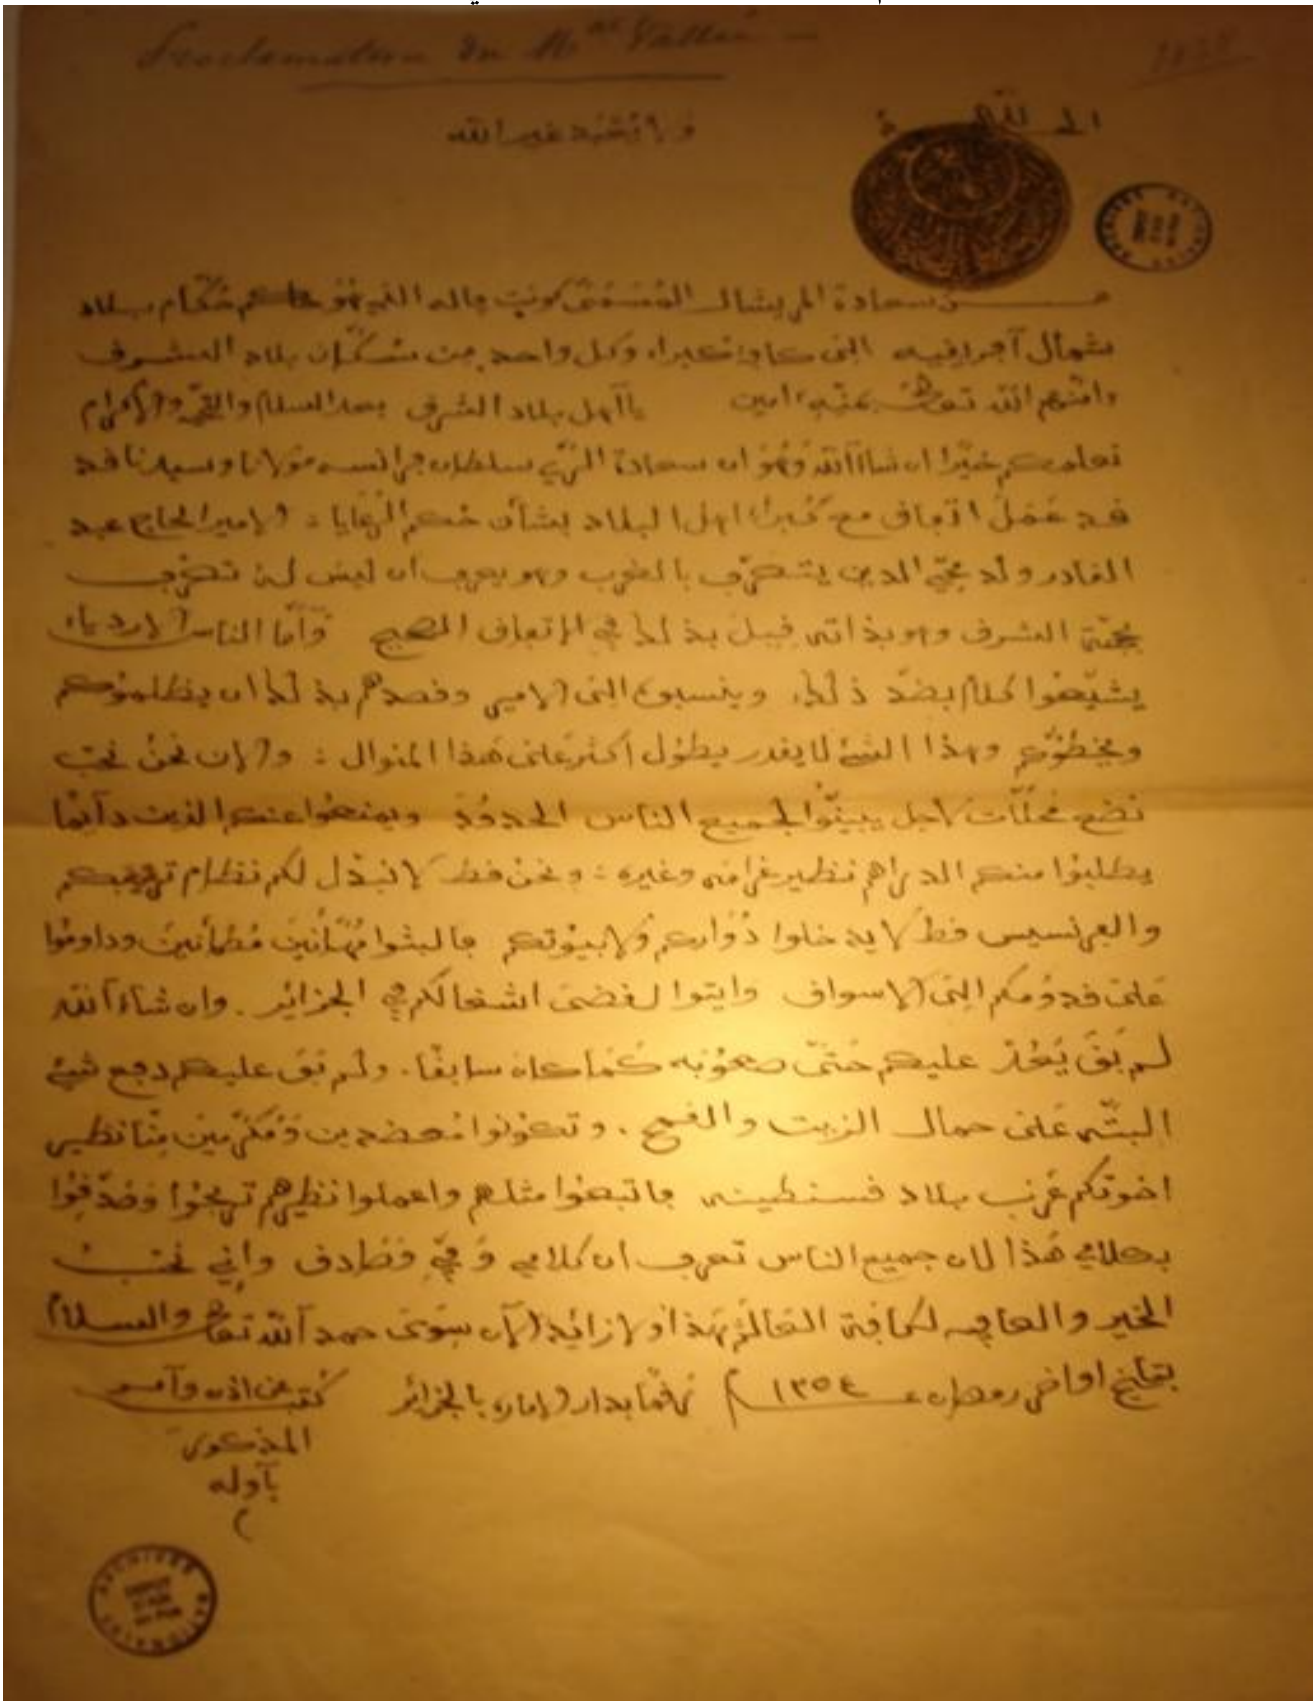 Proclamation du Mal Vallée
1838
الحمد لله
ولا نعبد غير الله
مــن سعادة المريشال المسمى كونت واله الذي هو حاكم حكام بلاد
شمال آفريقيه الى كافة كبراء وكل واحد من سكان بلاد الشرق
الله تعالى بمنه امين يا آهل بلاد الشرق بعد السلام والاكرام
نعلمكم خيرًا ان شاء آلله وهو ان سعادة الري سلطان فرانسه مولانا وسيدنا قد
قد عمل اتفاق مع كبراء اهل البلاد بشأن حكم الرعايا : الامير الحاج عبد
القادر ولد محي الدين يتصرف بالغرب وهو يعرف أن ليس له تصرف
بجهة الشرق وهو بذاته قبل بذلك في الاتفاق الصحيح وآما الناس الاردياء
يشيعوا كلام بضد ذلك وينسبوه الى الامير وقصدهم بذلك ان يظلموكم
وهذا الشئ لا يقدر يطول اكثر على هذا المنوال : والان نحن نحب
نضع محلات لاجل يبينوا لجميع الناس الحدود ويمنعوا عنكم الذين دآيما
يطلبوا منكم الدراهم نظير غرامه وغيره : ونحن قط لا نبدل لكم نظام
والفرنسيس قط لا يدخلوا دواركم ولا بيوتكم فالبثوا مهانين مطمأنين وداوموا
على قدومكم الى الاسواق وايتوا لقضى اشغالكم في الجزائر . وان شاء آلله
لم بق عليكم حتى صعوبه كما كان سابقا . ولم بق عليكم دفع شئ
البته على حمال الزيت والقمح . وتكونوا معضدين ومكرمين منا نظير
اخوتكم عرب بلاد قسنطينه فاتبعوا مثلهم واعملوا نظيرهم تربحوا وصدقوا
بكلامي هذا لان جميع الناس تعرف ان كلامي وفي وصادق وإني نحب
الخير والعافيه لكافة العالم هذا ولا زائد الآن سوى حمد آلله تعالى والسلام
بتاريخ اواخر رمضان ١٢٥٤ بدار الاماره بالجزائر كتب عن اذن وآمر
المذكور
بآوله
ARCHIVES NATIONALES